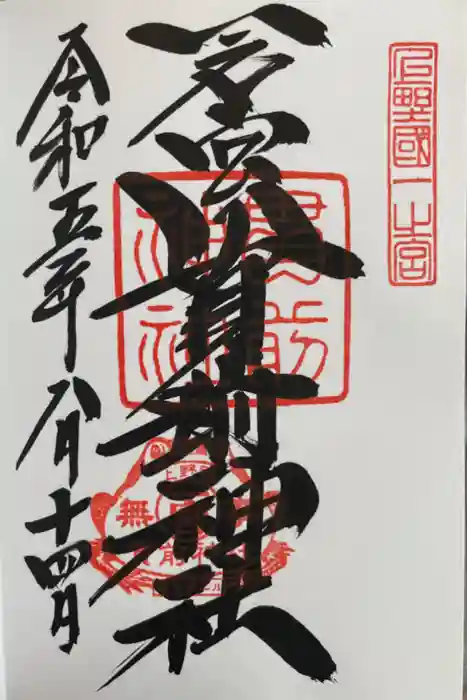 上野國一之宮
一之宮貫前神社
貫前
神社
上野國
無
令和五年八月十四日